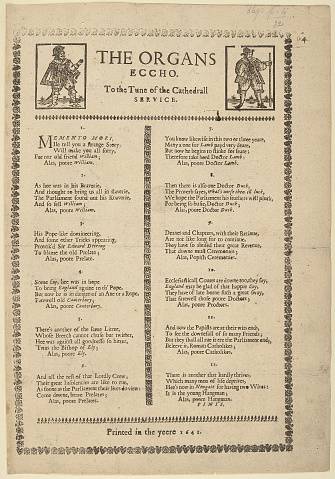 THE ORGANS
ECCHO.
To the Tune of the Cathedrall
SERVICE.
1.
MEMENTO MORI,
Ile tell you a strange Story,
Will make you all sorry,
For our old friend William;
Alas, poore William.
2.
As hee was in his Braverie,
And thought to bring us all in slaverie,
The Parliament found out his Knaverie,
And so fell William;
Alas, poore William.
3.
His Pope-like domineering,
And some other Tricks appearing,
Provok'd Sir Edward Deering
To blame the old Prelate;
Alas, poore Prelate.
4.
Some say, hee was in hope
To bring England againe to th' Pope,
But now he is in danger of an Axe or a Rope,
Farewell old Canterbury;
Alas, poore Canterbury.
5.
There's another of the same Litter,
Whose Breech cannot chuse but twitter,
Hee was against all goodnesse so bitter,
'Twas the Bishop of Ely;
Alas, poore Ely.
6.
And all the rest of that Lordly Crew,
Their great Insolencies are like to rue,
As soone as the Parliament their lives do view:
Come downe, brave Prelates;
Alas, poore Prelates.
7.
You know likewise in this two or three yeare,
Many a one for Lamb paid very deare,
But now he begins to stinke for feare;
Therefore take heed Doctor Lamb;
Alas, poore Doctor Lamb.
8.
Then there is also one Doctor Duck,
The Proverb sayes, What's worse then ill luck,
We hope the Parliament his feathers will pluck,
For being so busie, Doctor Duck;
Alas, poore Doctor Duck.
9.
Deanes and Chapters, with their Retinue,
Are not like long for to continue,
They have so abused their great Revenue,
That downe must Ceremonies;
Alas, Popish Ceremonies.
10.
Ecclesiasticall Courts are downe too they say,
England may be glad of that happie day,
They have of late borne such a great sway,
That farewell those poore Doctors;
Alas, poore Proctors.
11.
And now the Papists are at their wits ends,
To see the downefall of so many Friends;
But they shall all rue it ere the Parliament ends,
Believe it, Roman Catholikes;
Alas, poore Catholikes.
12.
There is another that hardly thrives,
Which many men of life deprives,
Hee's now in Newgate for having two Wives:
It is the young Hangman;
Alas, poore Hangman.
FINIS.
Printed in the yeere 1641.